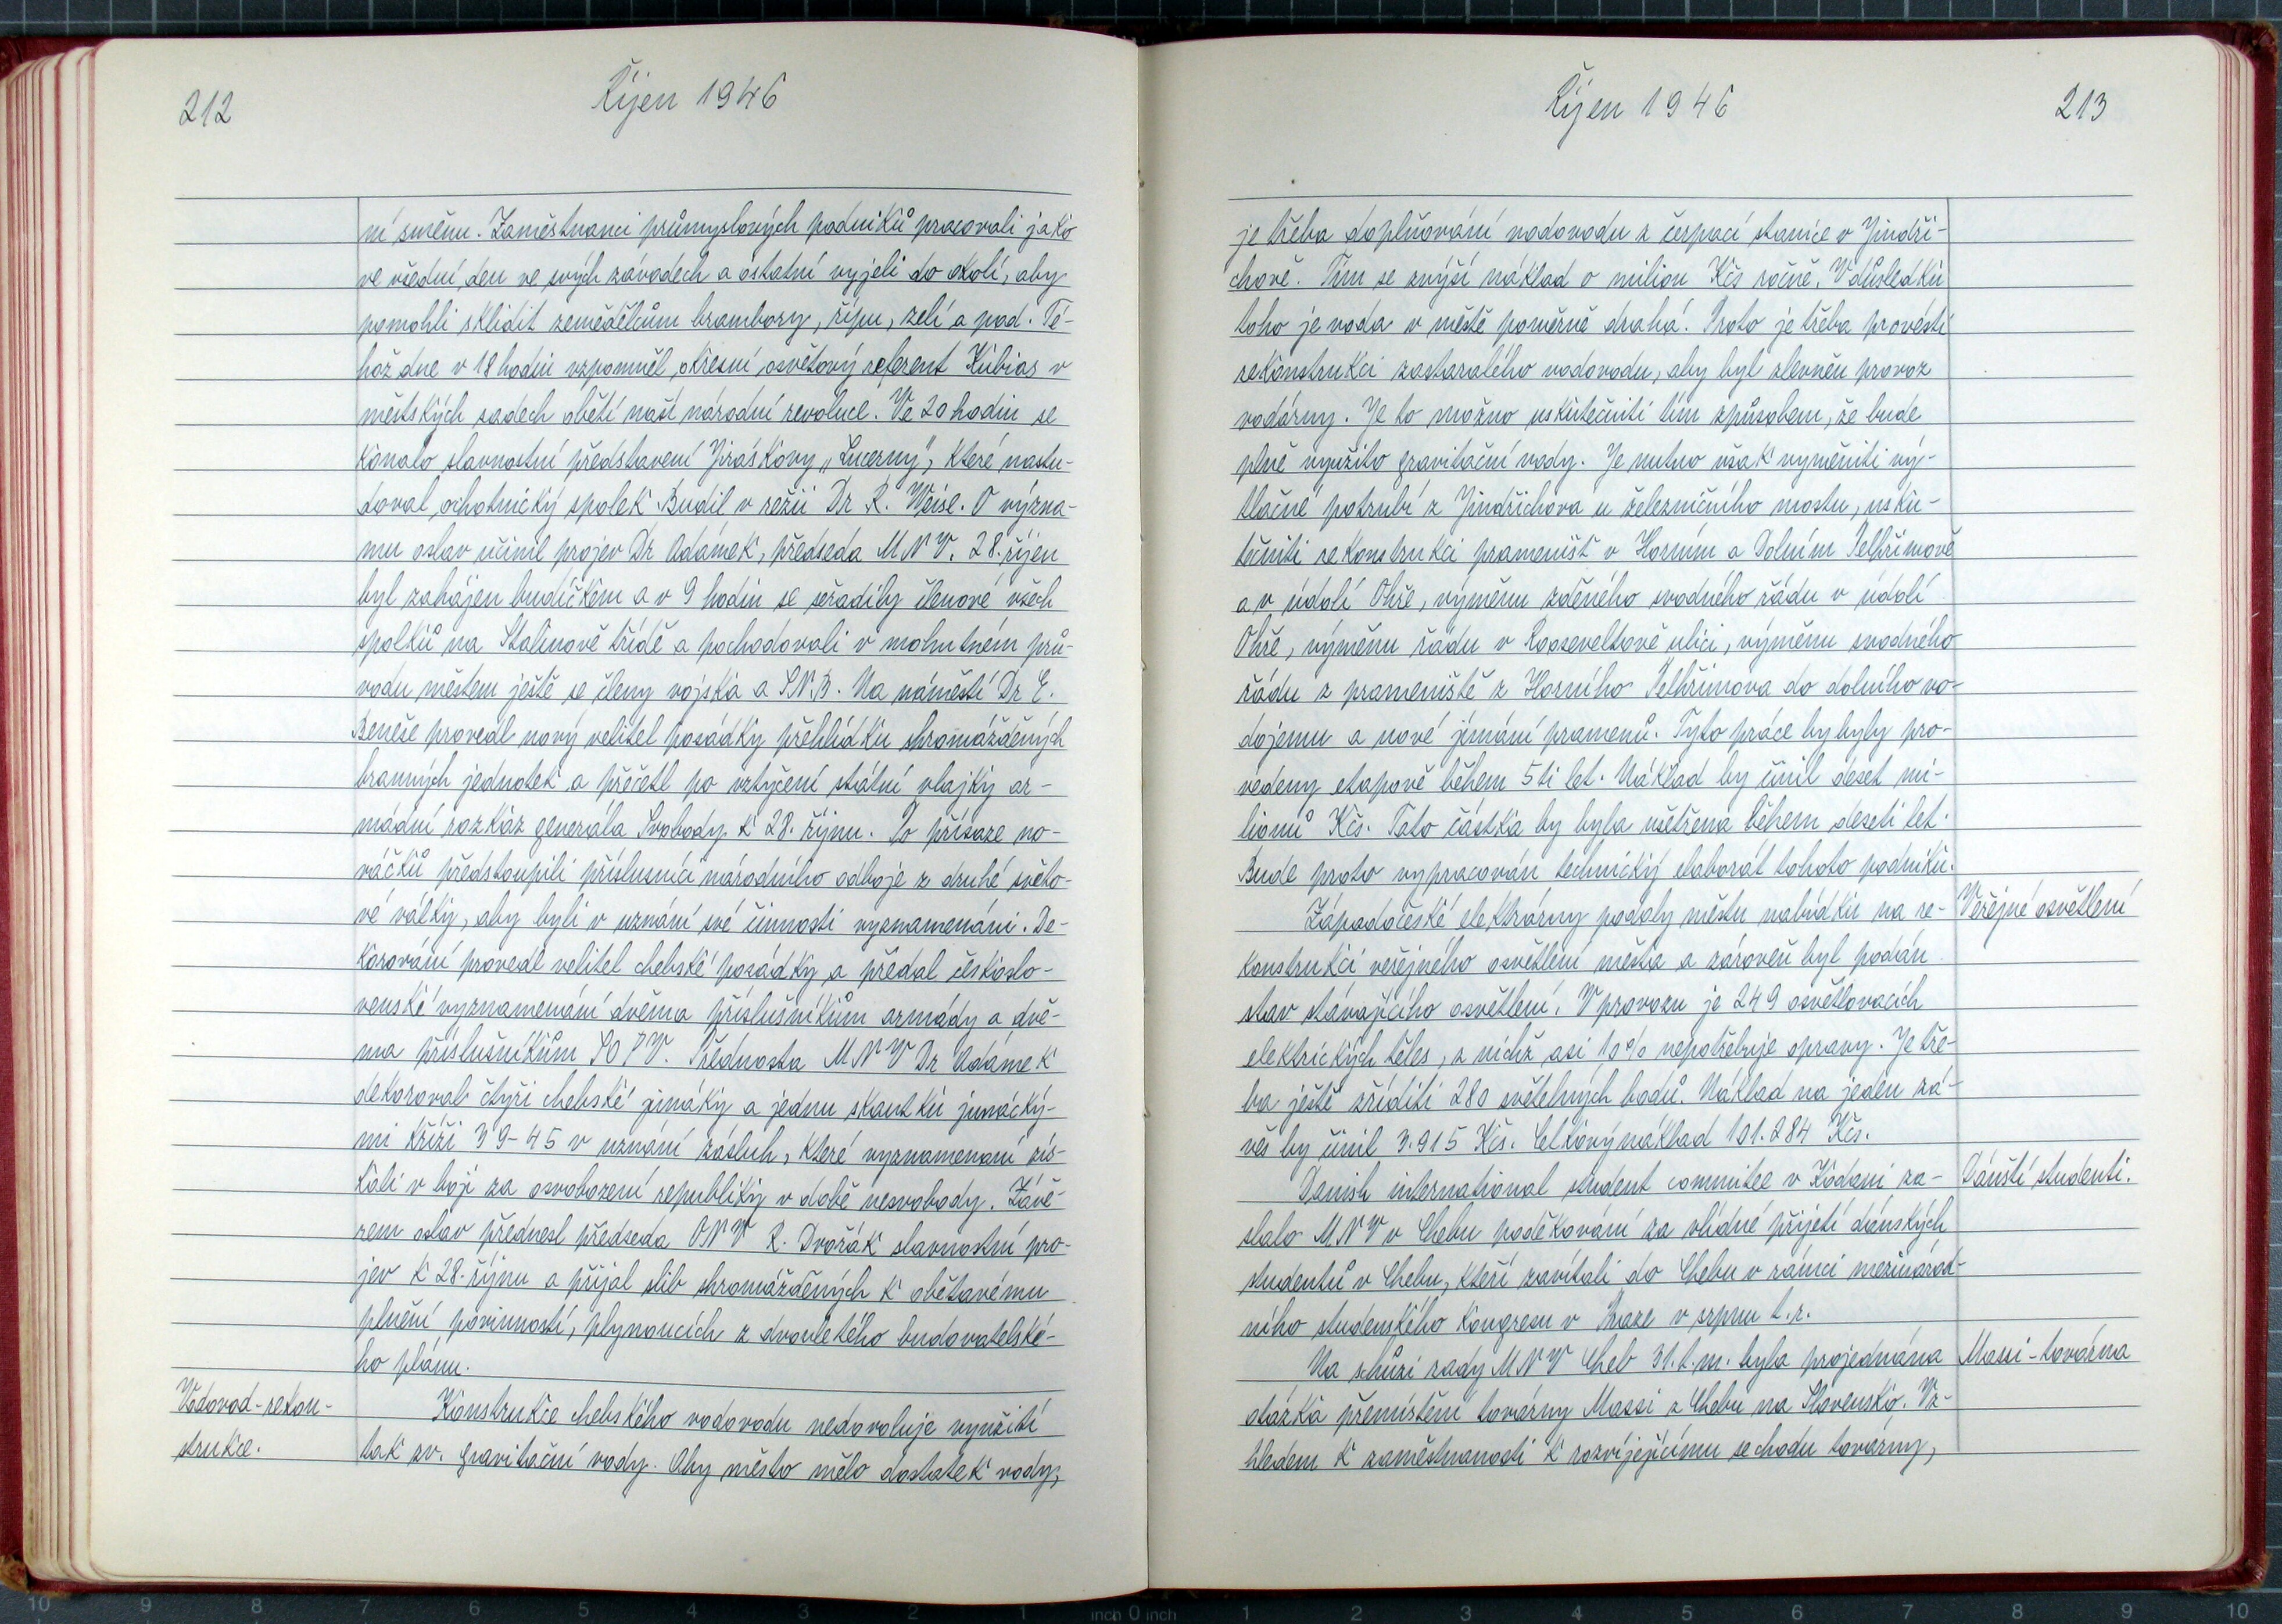 212
Říjen 1946
ní směnu. Zaměstnanci průmyslových podniků pracovali jako
ve všední den ve svých závodech a ostatní vyjeli do okolí, aby
pomohli sklidit zemědělcům brambory, řípu, zelí a pod. Té-
hož dne v 18 hodin vzpomněl okresní osvětový referent Kubias v
městských sadech obětí naší národní revoluce. Ve 20 hodin se
konalo slavnostní představení Jiráskovy „Lucerny", které nastu-
doval ochotnický spolek Budil v režii Dr R. Weise. O význa-
mu oslav učinil projev Dr Adámek, předseda MNV. 28. říjen
byl zahájen budíčkem a v 9 hodin se seřadily členové všech
spolků na Stalinově třídě a pochodovali v mohutném prů-
vodu městem ještě se členy vojska a SNB. Na náměstí Dr E.
Beneše provedl nový velitel posádky přehlídku shromážděných
branných jednotek a přečetl po vztyčení státní vlajky ar-
mádní rozkaz generála Svobody k 28. říjnu. Po přísaze no-
váčků předstoupili příslusníci národního odboje z druhé světo-
vé války, aby byli v uznání své činnosti vyznamenáni. De-
korování provedl velitel chebské posádky a předal českoslo-
venské vyznamenání dvěma příslušníkům armády a dvě-
ma příslušníkům SOPV. Přednosta MNV Dr Adámek
dekoroval čtyři chebské junáky a jednu skautku junácký-
mi kříži 39-45 v uznání zásluh, které vyznamenaní zís-
kali v boji za osvobození republiky v době nesvobody. Závě-
rem oslav přednesl předseda ONV R. Dvořák slavnostní pro-
jev k 28. říjnu a přijal slib shromážděných k obětavému
plnění povinností, plynoucích z dvouletého budovatelské-
ho plánu.
Vodovod-rekon-
strukce.
Konstrukce chebského vodovodu nedovoluje využití
tak zv. gravitační vody. Aby město mělo dostatek vody,
Říjen 1946
213
je třeba doplňování vodovodu z čerpací stanice v Jindři-
chově. Tím se zvýší náklad o milion Kčs ročně. V důsledku
toho je voda v městě poměrně drahá. Proto je třeba provésti
rekonstrukci zastaralého vodovodu, aby byl zlevněn provoz
vodárny. Je to možno uskutečniti tím způsobem, že bude
plně využito gravitační vody. Je nutno však vyměniti vý-
tlačné potrubí z Jindřichova u železničního mostu, usku-
tečniti rekonstrukci pramenišť v Horním a Dolním Pelhřimově
a v údolí Ohře, výměnu zděného svodného řádu v údolí
Ohře, výměnu řádu v Rooseveltově ulici, výměnu svodného
řádu z prameniště z Horního Pelhřimova do dolního vo-
dojemu a nové jímání pramenů. Tyto práce by byly pro-
vedeny etapově během 5ti let. Náklad by činil deset mi-
lionů Kčs. Tato částka by byla ušetřena během deseti let.
Bude proto vypracován technický elaborát tohoto podniku.
Západočeské elektrárny podaly městu nabídku na re-
Veřejné osvětlení
konstrukci veřejného osvětlení města a zároveň byl podán
stav stávajícího osvětlení. V provozu je 249 osvětlovacích
elektrických těles, z nichž asi 10% nepotřebuje opravy. Je tře-
ba ještě zříditi 280 světelných bodů. Náklad na jeden zá-
věs by činil 3.915 Kčs. Celkový náklad 101.284 Kčs.
Danish international student commitee v Kodani za-
Dánští studenti.
slalo MNV v Chebu poděkování za vlídné přijetí dánských
studentů v Chebu, kteří zavítali do Chebu v rámci mezinárod-
ního studenského kongresu v Praze v srpnu t.r.
Na schůzi rady MNV Cheb 31.t.m. byla projednána
Massi-továrna
otázka přemístění továrny Massi z Chebu na Slovensko. Vz-
hledem k zaměstnanosti k rozvíjejícímu se chodu továrny,